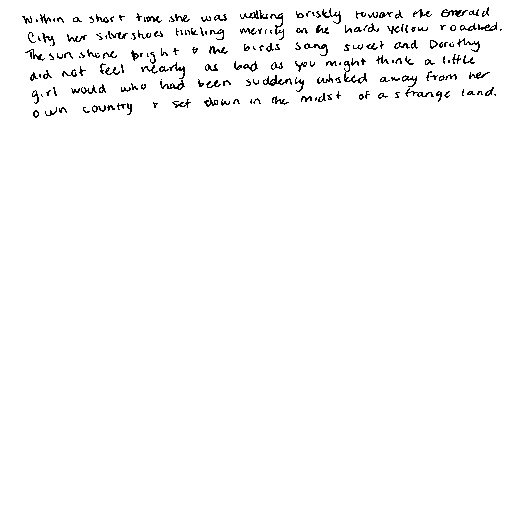 Within a short time she was walking briskly toward the Emerald
City her silver shoes tinkling merrily on the hard yellow roadbed.
The sun shone bright & the birds sang sweet and Dorothy
did not feel nearly as bad as you might think a little
girl would who had been suddenly whisked away from her
own country & set down in the midst of a strange land.